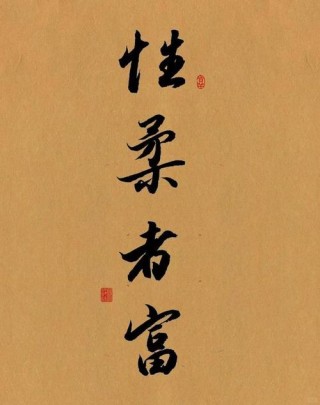 性柔者富